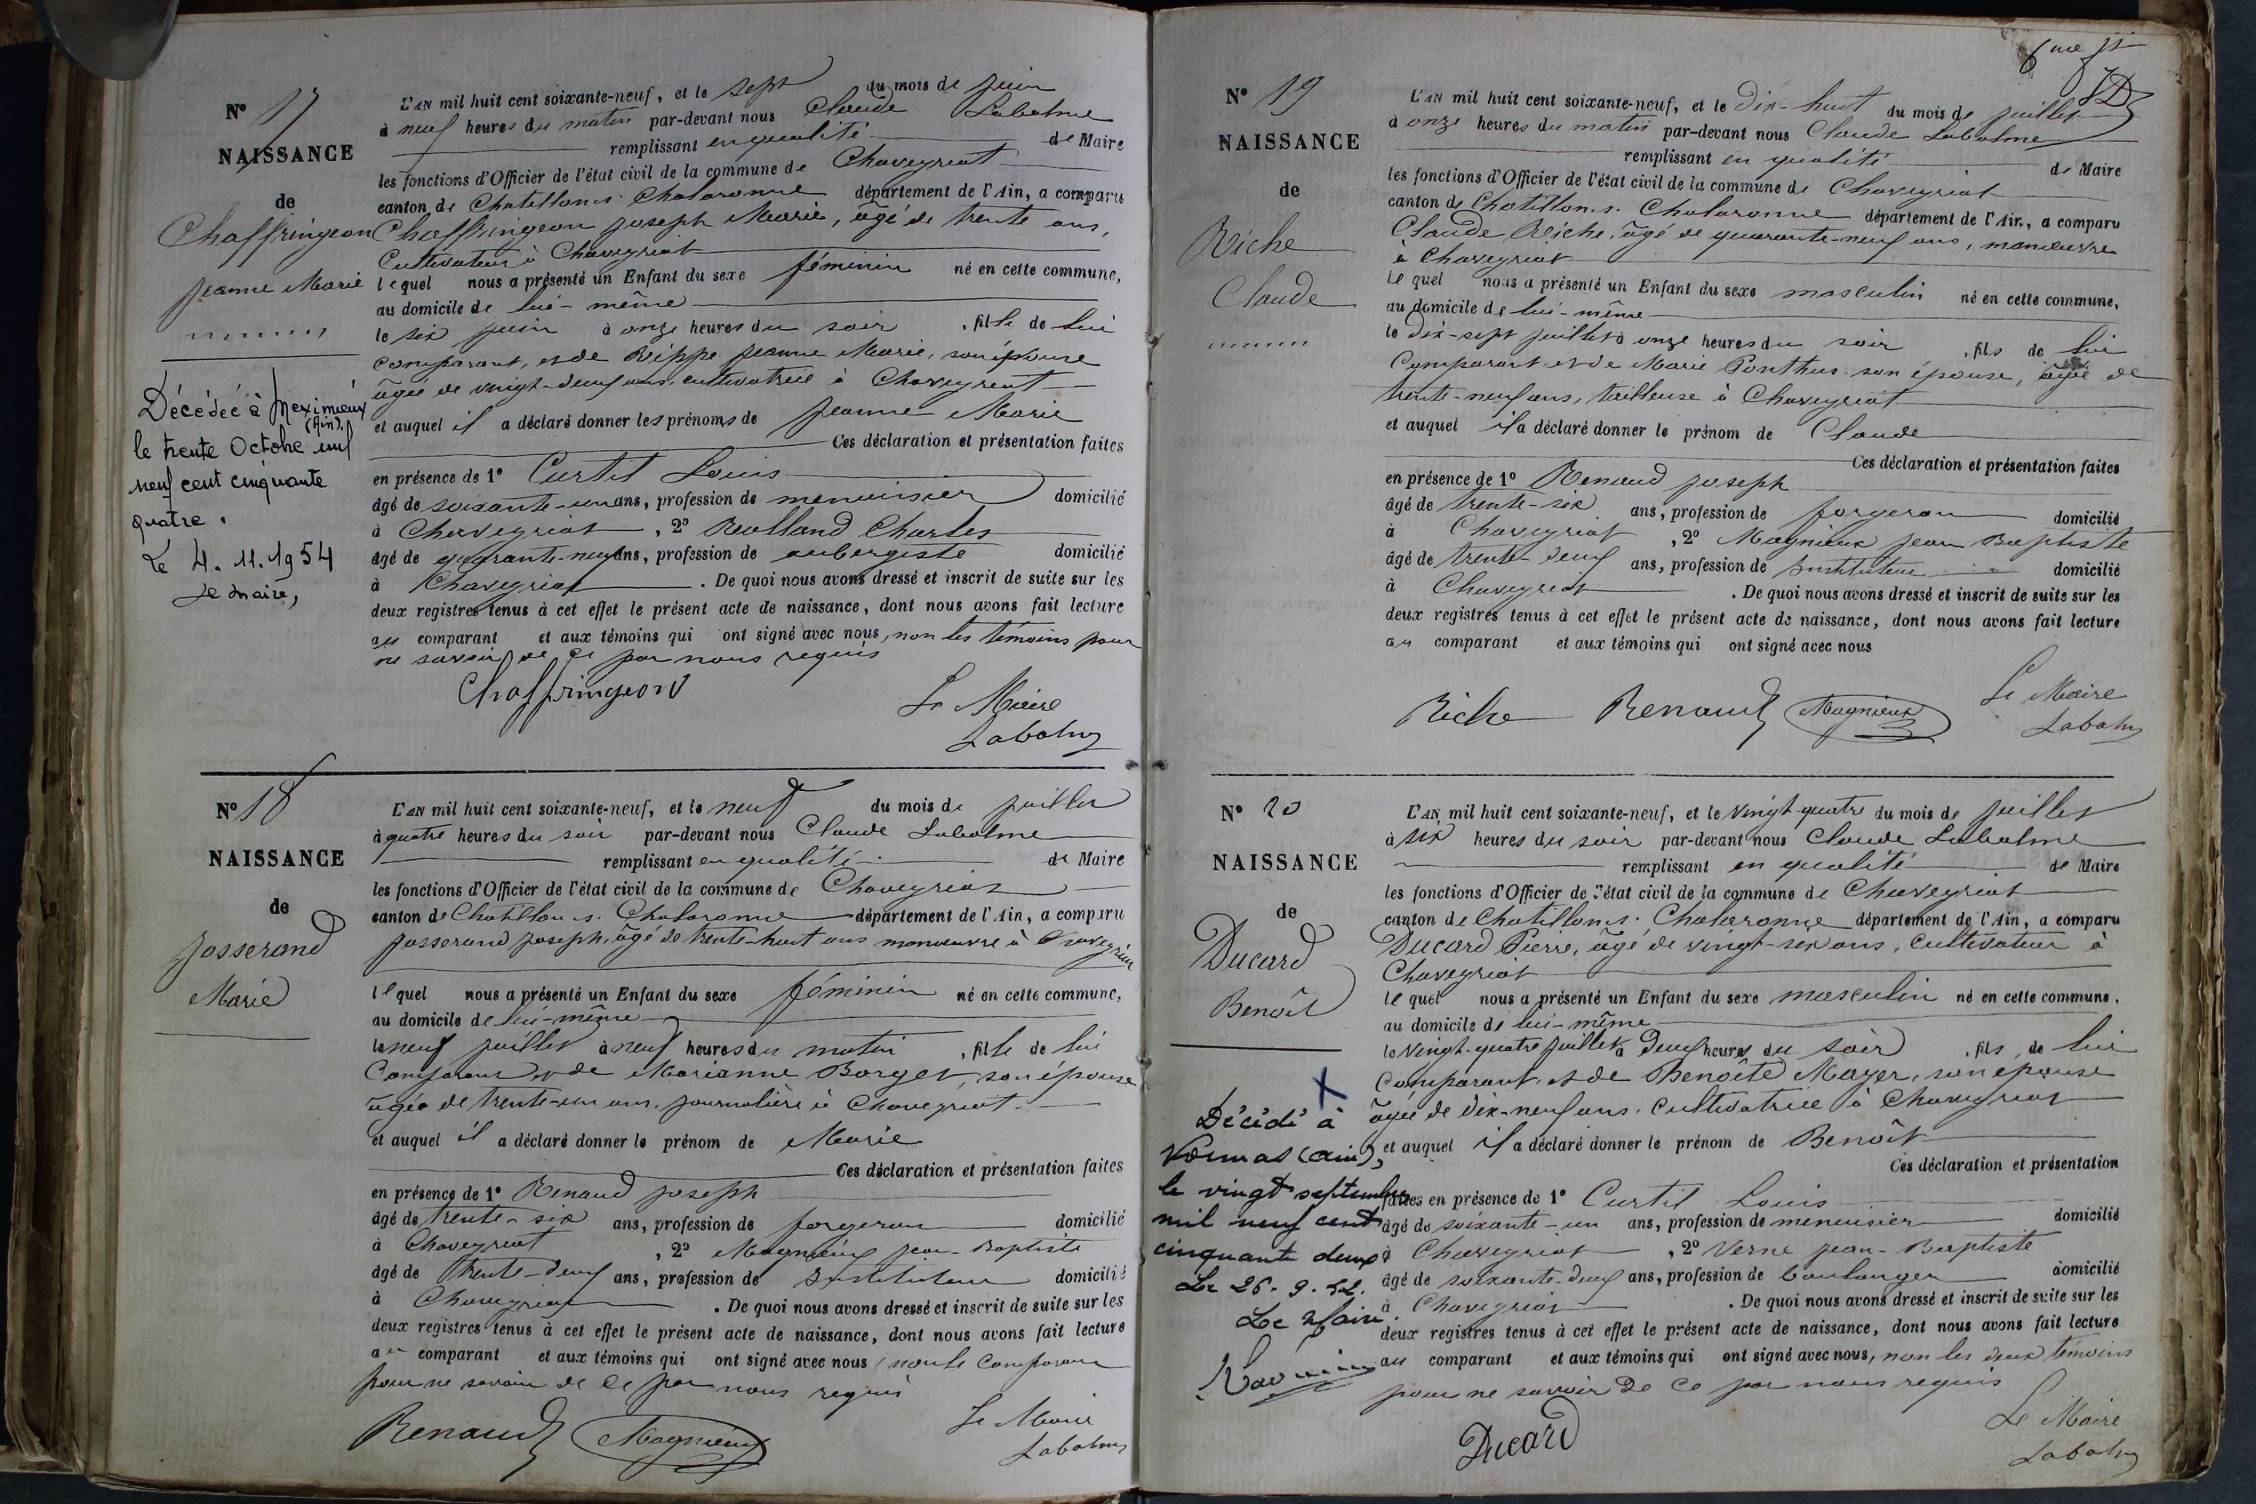 Nº 17
NAISSANCE
de
Chaffringeon
Jeanne Marie
Décédée à Meximieux
(Ain).
le trente Octobre mil
neuf cent cinquante
quatre.
Le 4.11.1954
Le Maire,
L'AN mil huit cent soixante-neuf, et le sept du mois de juin
à neuf heures du matin par-devant nous Claude Labalme
remplissant en qualité de Maire
les fonctions d'Officier de l'état civil de la commune de Chaveyriat
canton de Chatillon s. Chalaronne département de l'Ain, a comparu
Chaffringeon Joseph Marie, âgé de trente ans,
Cultivateur à Chaveyriat
lequel nous a présenté un Enfant du sexe féminin né en cette commune,
au domicile de lui-même
le six juin à onze heures du soir, fille de lui
comparant, et de Rippe Jeanne Marie, son épouse
âgée de vingt-deux ans, cultivatrice à Chaveyriat
et auquel il a déclaré donner les prénoms de Jeanne Marie
Ces déclaration et présentation faites
en présence de 1º Curtil Louis
âgé de soixante-un ans, profession de menuisier domicilié
à Chaveyriat, 2º Rolland Charles
âgé de quarante-neuf ans, profession de aubergiste domicilié
à Chaveyriat. De quoi nous avons dressé et inscrit de suite sur les
deux registres tenus à cet effet le présent acte de naissance, dont nous avons fait lecture
au comparant et aux témoins qui ont signé avec nous, non les témoins pour
ne savoir de ce par nous requis
Chaffringeon
Le Maire
Labalme
Nº 18
NAISSANCE
de
Josserand
Marie
L'AN mil huit cent soixante-neuf, et le neuf du mois de juillet
à quatre heures du soir par-devant nous Claude Labalme
remplissant en qualité de Maire
les fonctions d'Officier de l'état civil de la commune de Chaveyriat
canton de Chatillon s. Chalaronne département de l'Ain, a comparu
Josserand Joseph, âgé de trente-huit ans manœuvre à Chaveyriat
lequel nous a présenté un Enfant du sexe féminin né en cette commune,
au domicile de lui-même
le neuf juillet à neuf heures du matin, fille de lui
Comparant et de Marianne Borget, son épouse
âgée de trente-un ans, journalière à Chaveyriat
et auquel il a déclaré donner le prénom de Marie
Ces déclaration et présentation faites
en présence de 1º Renaud Joseph
âgé de trente-six ans, profession de forgeron domicilié
à Chaveyriat, 2º Magnieux Jean-Baptiste
âgé de trente-deux ans, profession de Instituteur domicilié
à Chaveyriat. De quoi nous avons dressé et inscrit de suite sur les
deux registres tenus à cet effet le présent acte de naissance, dont nous avons fait lecture
au comparant et aux témoins qui ont signé avec nous, non le Comparant
pour ne savoir de ce par nous requis
Renaud Magnieux
Le Maire
Labalme
6me ft
Nº 19
NAISSANCE
de
Riche
Claude
L'AN mil huit cent soixante-neuf, et le dix-huit du mois de juillet
à onze heures du matin par-devant nous Claude Labalme
remplissant en qualité de Maire
les fonctions d'Officier de l'état civil de la commune de Chaveyriat
canton de Chatillon s. Chalaronne département de l'Ain, a comparu
Claude Riche, âgé de quarante-neuf ans, manœuvre
à Chaveyriat
lequel nous a présenté un Enfant du sexe masculin né en cette commune,
au domicile de lui-même
le dix-sept juillet à onze heures du soir, fils de lui
Comparant et de Marie Ponthus son épouse, âgée de
trente-neuf ans, tailleuse à Chaveyriat
et auquel il a déclaré donner le prénom de Claude
Ces déclaration et présentation faites
en présence de 1º Renaud Joseph
âgé de trente-six ans, profession de forgeron domicilié
à Chaveyriat, 2º Magnieux Jean Baptiste
âgé de trente-deux ans, profession de Instituteur domicilié
à Chaveyriat. De quoi nous avons dressé et inscrit de suite sur les
deux registres tenus à cet effet le présent acte de naissance, dont nous avons fait lecture
au comparant et aux témoins qui ont signé avec nous
Riche Renaud Magnieux
Le Maire
Labalme
Nº 20
NAISSANCE
de
Ducard
Benoît
X
Décédé à
Vonnas (Ain),
le vingt septembre
mil neuf cent
cinquante deux
Le 26.9.52.
Le Maire.
L'AN mil huit cent soixante-neuf, et le vingt-quatre du mois de juillet
à six heures du soir par-devant nous Claude Labalme
remplissant en qualité de Maire
les fonctions d'Officier de l'état civil de la commune de Chaveyriat
canton de Chatillon s. Chalaronne département de l'Ain, a comparu
Ducard Pierre, âgé de vingt-six ans, cultivateur à
Chaveyriat
lequel nous a présenté un Enfant du sexe masculin né en cette commune,
au domicile de lui-même
le vingt-quatre juillet à deux heures du soir, fils de lui
comparant et de Benoîte Mayer, son épouse
âgée de dix-neuf ans, cultivatrice à Chaveyriat
et auquel il a déclaré donner le prénom de Benoît
Ces déclaration et présentation
faites en présence de 1º Curtil Louis
âgé de soixante-un ans, profession de menuisier domicilié
à Chaveyriat, 2º Verne Jean-Baptiste
âgé de soixante-deux ans, profession de boulanger domicilié
à Chaveyriat. De quoi nous avons dressé et inscrit de suite sur les
deux registres tenus à cet effet le présent acte de naissance, dont nous avons fait lecture
au comparant et aux témoins qui ont signé avec nous, non les deux témoins
pour ne savoir de ce par nous requis
Ducard
Le Maire
Labalme